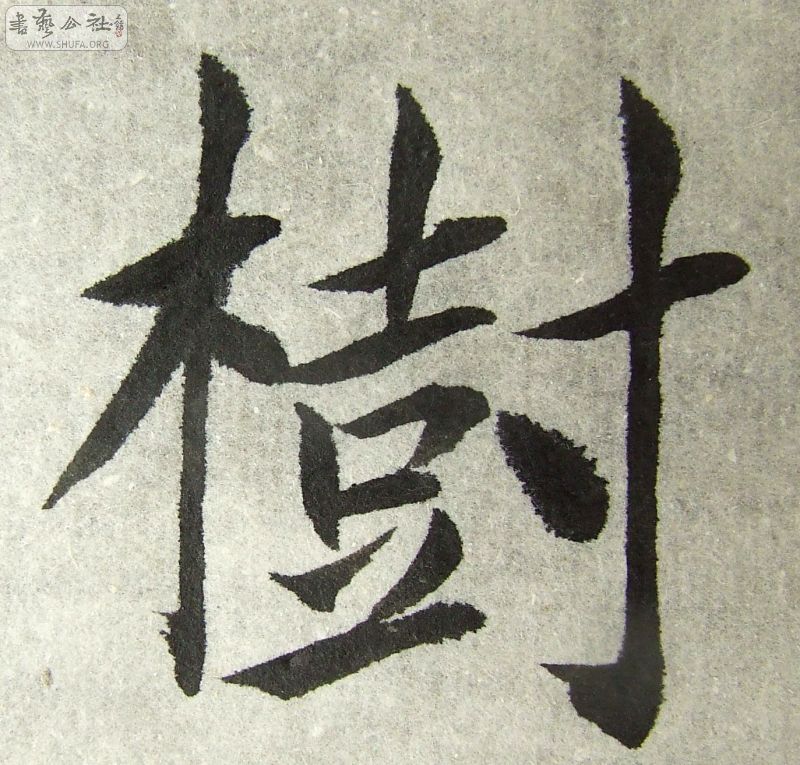 書藝公社
WWW.SHUFA.ORG
樹